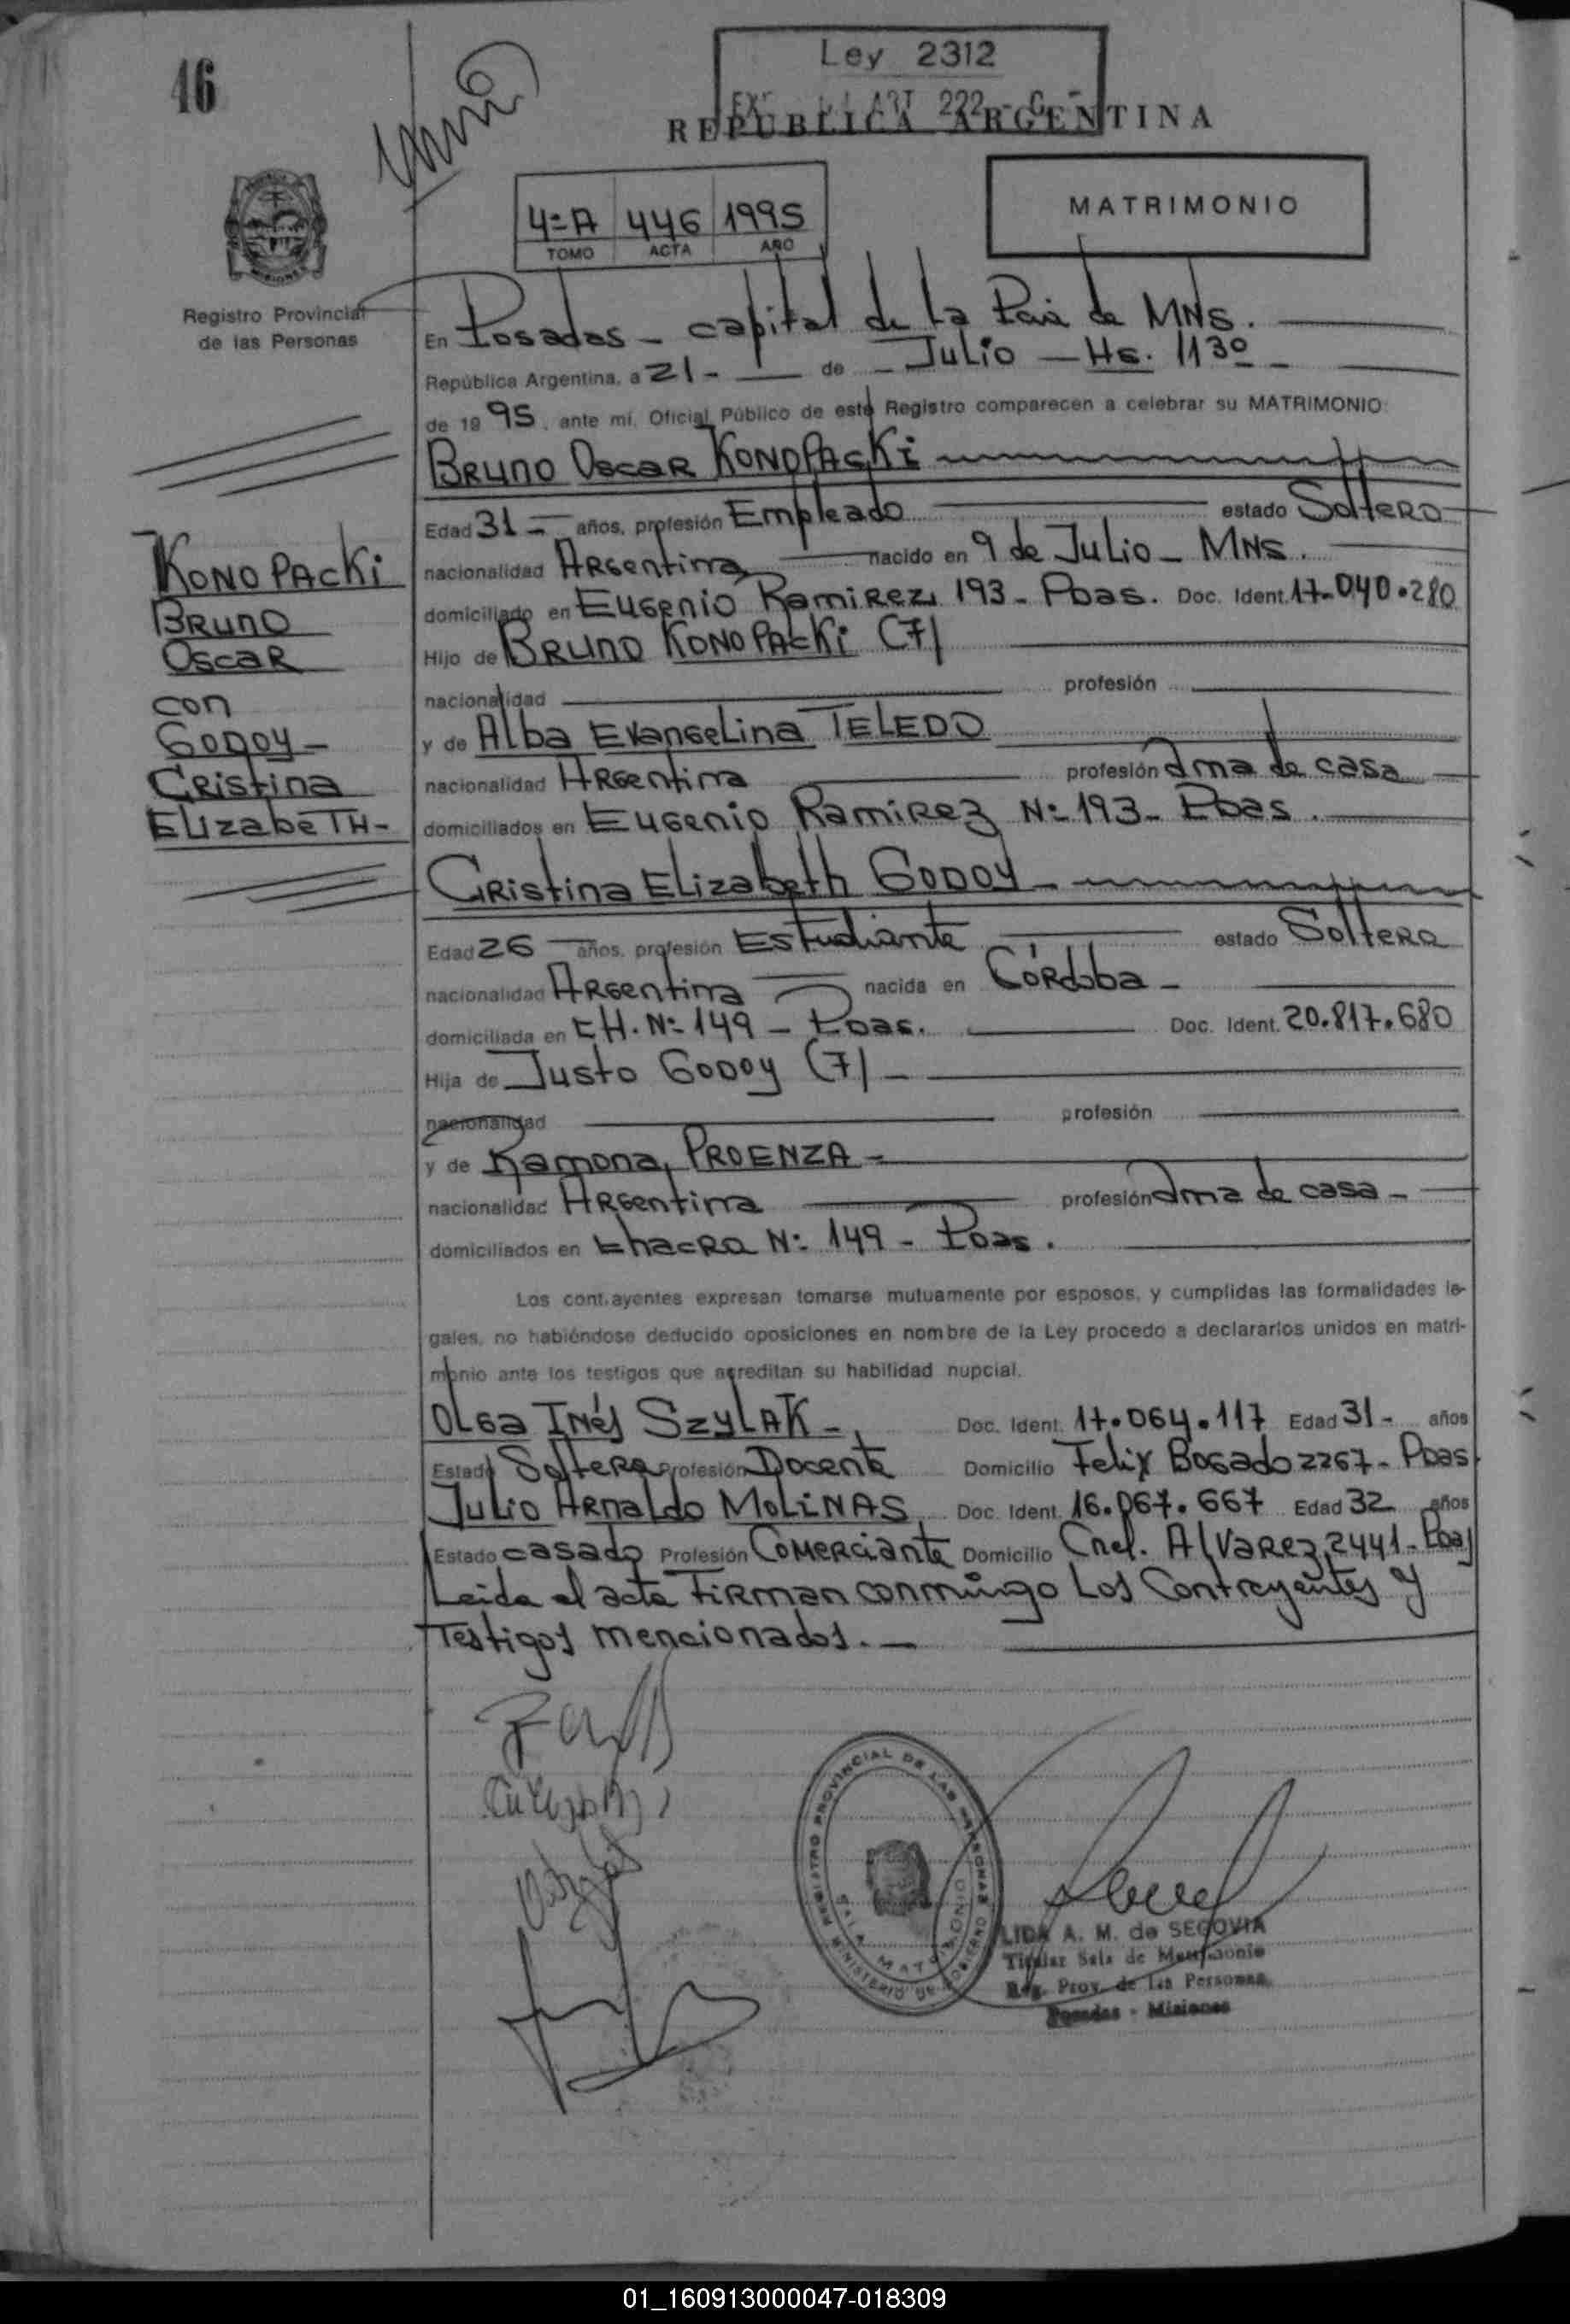 46
Ley 2312
REPUBLICA ARGENTINA
4º A 446 1995
TOMO ACTA AÑO
MATRIMONIO
Registro Provincial
de las Personas
En Posadas - capital de la Pcia de MNS.
República Argentina, a 21 - de - Julio - Hs. 11³⁰ -
de 1995, ante mí, Oficial Público de este Registro comparecen a celebrar su MATRIMONIO:
BRUNO OSCAR KONOPACKI
Edad 31 - años, profesión Empleado estado Soltero
nacionalidad Argentina nacido en 9 de Julio - MNS.
domiciliado en Eugenio Ramirez 193 - Pdas. Doc. Ident. 17.040.280
Hijo de BRUNO KONOPACKI (7)
nacionalidad profesión
y de Alba Evangelina TELEDO
nacionalidad Argentina profesión Ama de casa
domiciliados en Eugenio Ramirez Nº 193 - Pdas.
KONOPACKI
BRUNO
OSCAR
con
GODOY -
CRistina
ELizabeTH -
CRistina ELizabeth GODOY -
Edad 26 años, profesión Estudiante estado Soltera
nacionalidad Argentina nacida en Córdoba -
domiciliada en CH. Nº 149 - Pdas. Doc. Ident. 20.817.680
Hija de Justo GODOY (7) -
nacionalidad profesión
y de Ramona PROENZA -
nacionalidad Argentina profesión Ama de casa -
domiciliados en Chacra Nº 149 - Pdas.
Los contrayentes expresan tomarse mutuamente por esposos, y cumplidas las formalidades le-
gales, no habiéndose deducido oposiciones en nombre de la Ley procedo a declararlos unidos en matri-
monio ante los testigos que acreditan su habilidad nupcial.
Olga Inés SZYLAK - Doc. Ident. 17.064.117 Edad 31 - años
Estado Soltera Profesión Docente Domicilio Felix Bogado 2267 - Pdas.
Julio Arnaldo MOLINAS Doc. Ident. 16.067.667 Edad 32 años
Estado casado Profesión Comerciante Domicilio Cnel. Alvarez 2441 - Pdas
Leida el acta Firman conmingo Los Contrayentes y
Testigos mencionados. -
REGISTRO PROVINCIAL DE LAS PERSONAS
MINISTERIO DE GOBIERNO
SALA MATRIMONIO
LIDA A. M. de SEGOVIA
Titular Sala de Matrimonio
Reg. Prov. de las Personas
Posadas - Misiones
01_160913000047-018309